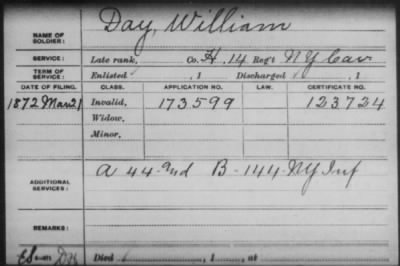 NAME OF SOLDIER: Day, William
SERVICE: Late rank, Co. H, 14 Reg't N Y Cav
TERM OF SERVICE: Enlisted , 1 Discharged , 1
DATE OF FILING. CLASS. APPLICATION NO. LAW. CERTIFICATE NO.
1872 Mar 21 Invalid, 173599 123724
Widow,
Minor,
ADDITIONAL SERVICES: A 44 2nd B-144 NY Inf
REMARKS:
Died , 1 , at